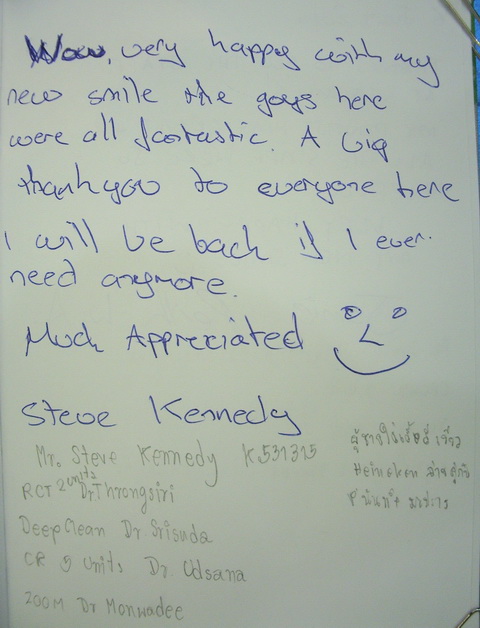 Wow, very happy with my
new smile the guys here
were all fantastic. A big
thank you to everyone here
I will be back if I ever
need anymore.
Much Appreciated
Steve Kennedy
Mr. Steve Kennedy K531315
RCT 2 units Dr Throngsiri
Deep Clean Dr. Srisuda
CR 5 units Dr. Udsana
ZOOM Dr Monwadee
ผู้ชายใส่เสื้อสีเขียว
Heineken ถ่ายคู่กับ